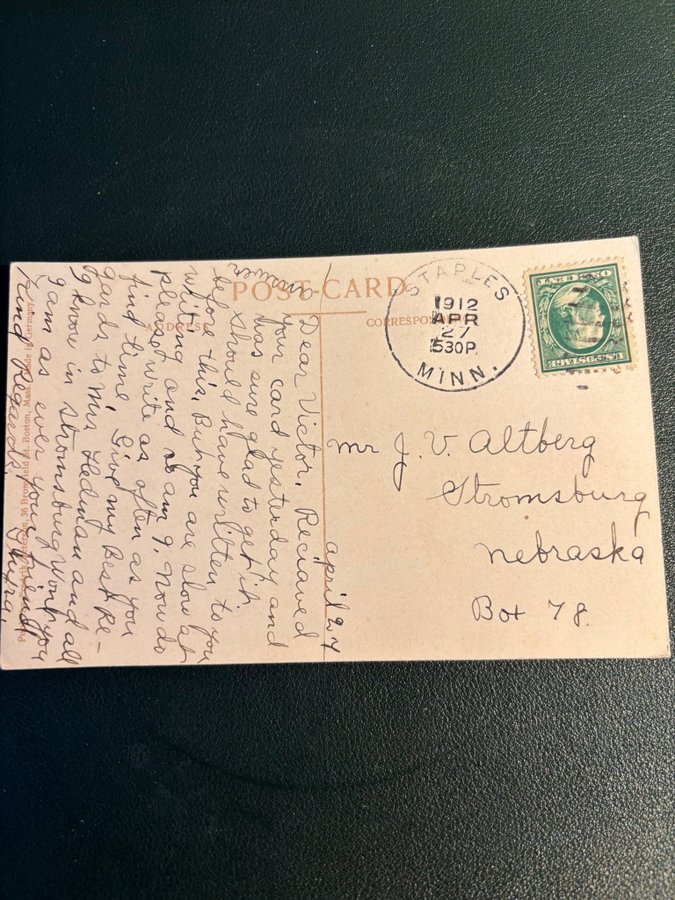 POST-CARD
ADDRESS
CORRESPON
STAPLES
1912
APR
27
530P
MINN.
U.S. POSTAGE
Mr J. V. Altberg
Stromsburg
Nebraska
Box 78.
April 27
Dear Victor, Reciaved
your card yesterday and
was sure glad to get it
should have written to you
before this, But you are slow at
writing and so am I. Now do
please write as often as you
find time. Give my best Re-
gards to Mrs Hedman and all
I know in Stromsburg. Won't you
I am as ever your friend
Kind Regards,
Answer
36 Bromfield St. Boston, Mass.